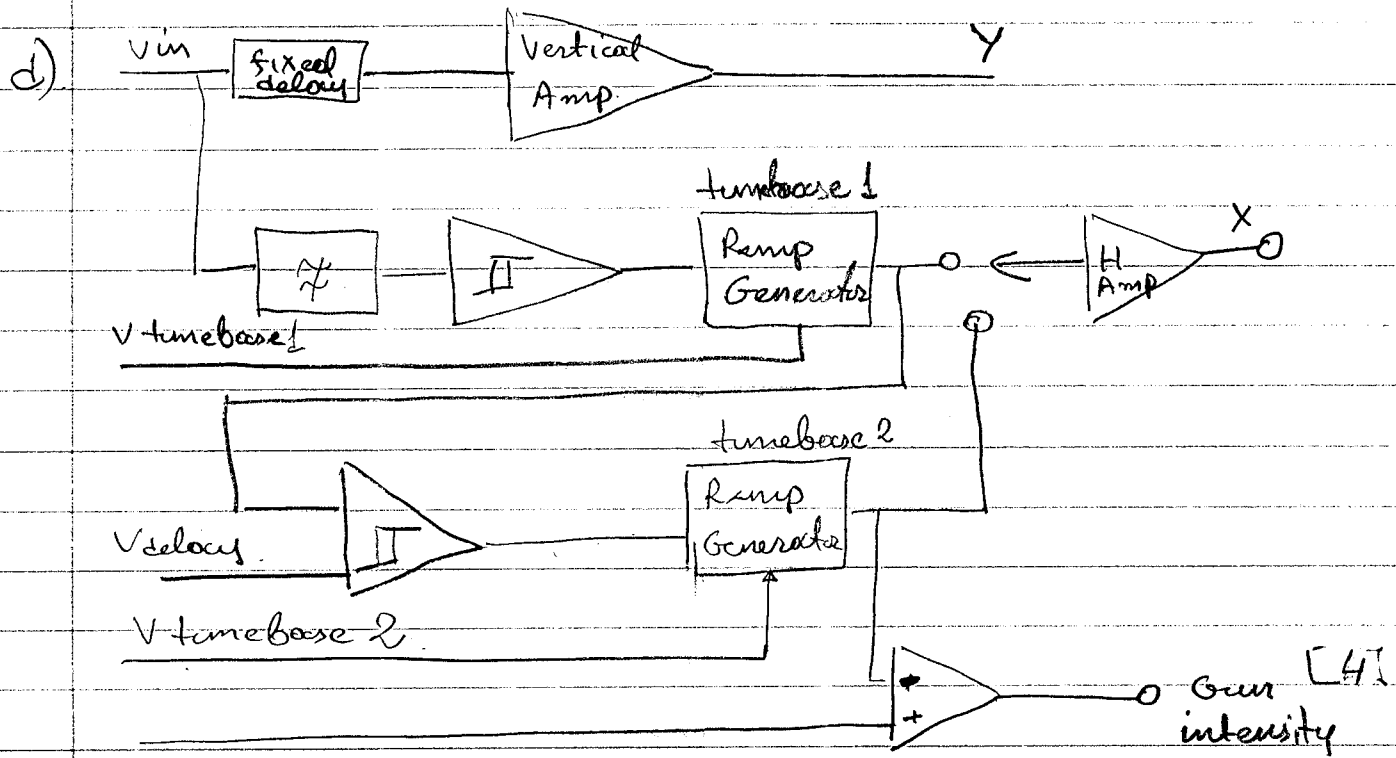 d)
Vin
fixed
delay
Vertical
Amp.
Y
timebase 1
Ramp
Generator
H
Amp
X
V timebase 1
timebase 2
Ramp
Generator
Vdelay.
V timebase 2
+
Gun
intensity
[4]